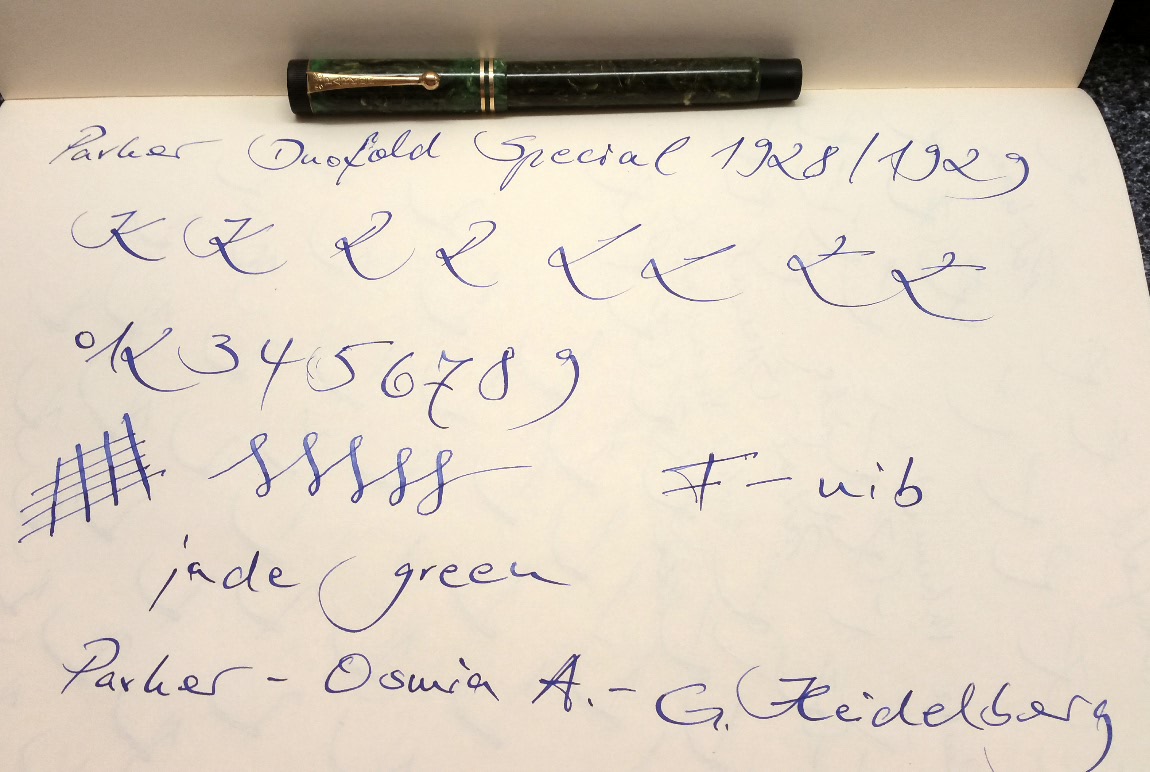 Parker Duofold Special 1928/1929
K K R R L L Ł Ł
0 1 2 3 4 5 6 7 8 9
F - nib
jade green
Parker - Osmia A.- G. Heidelberg